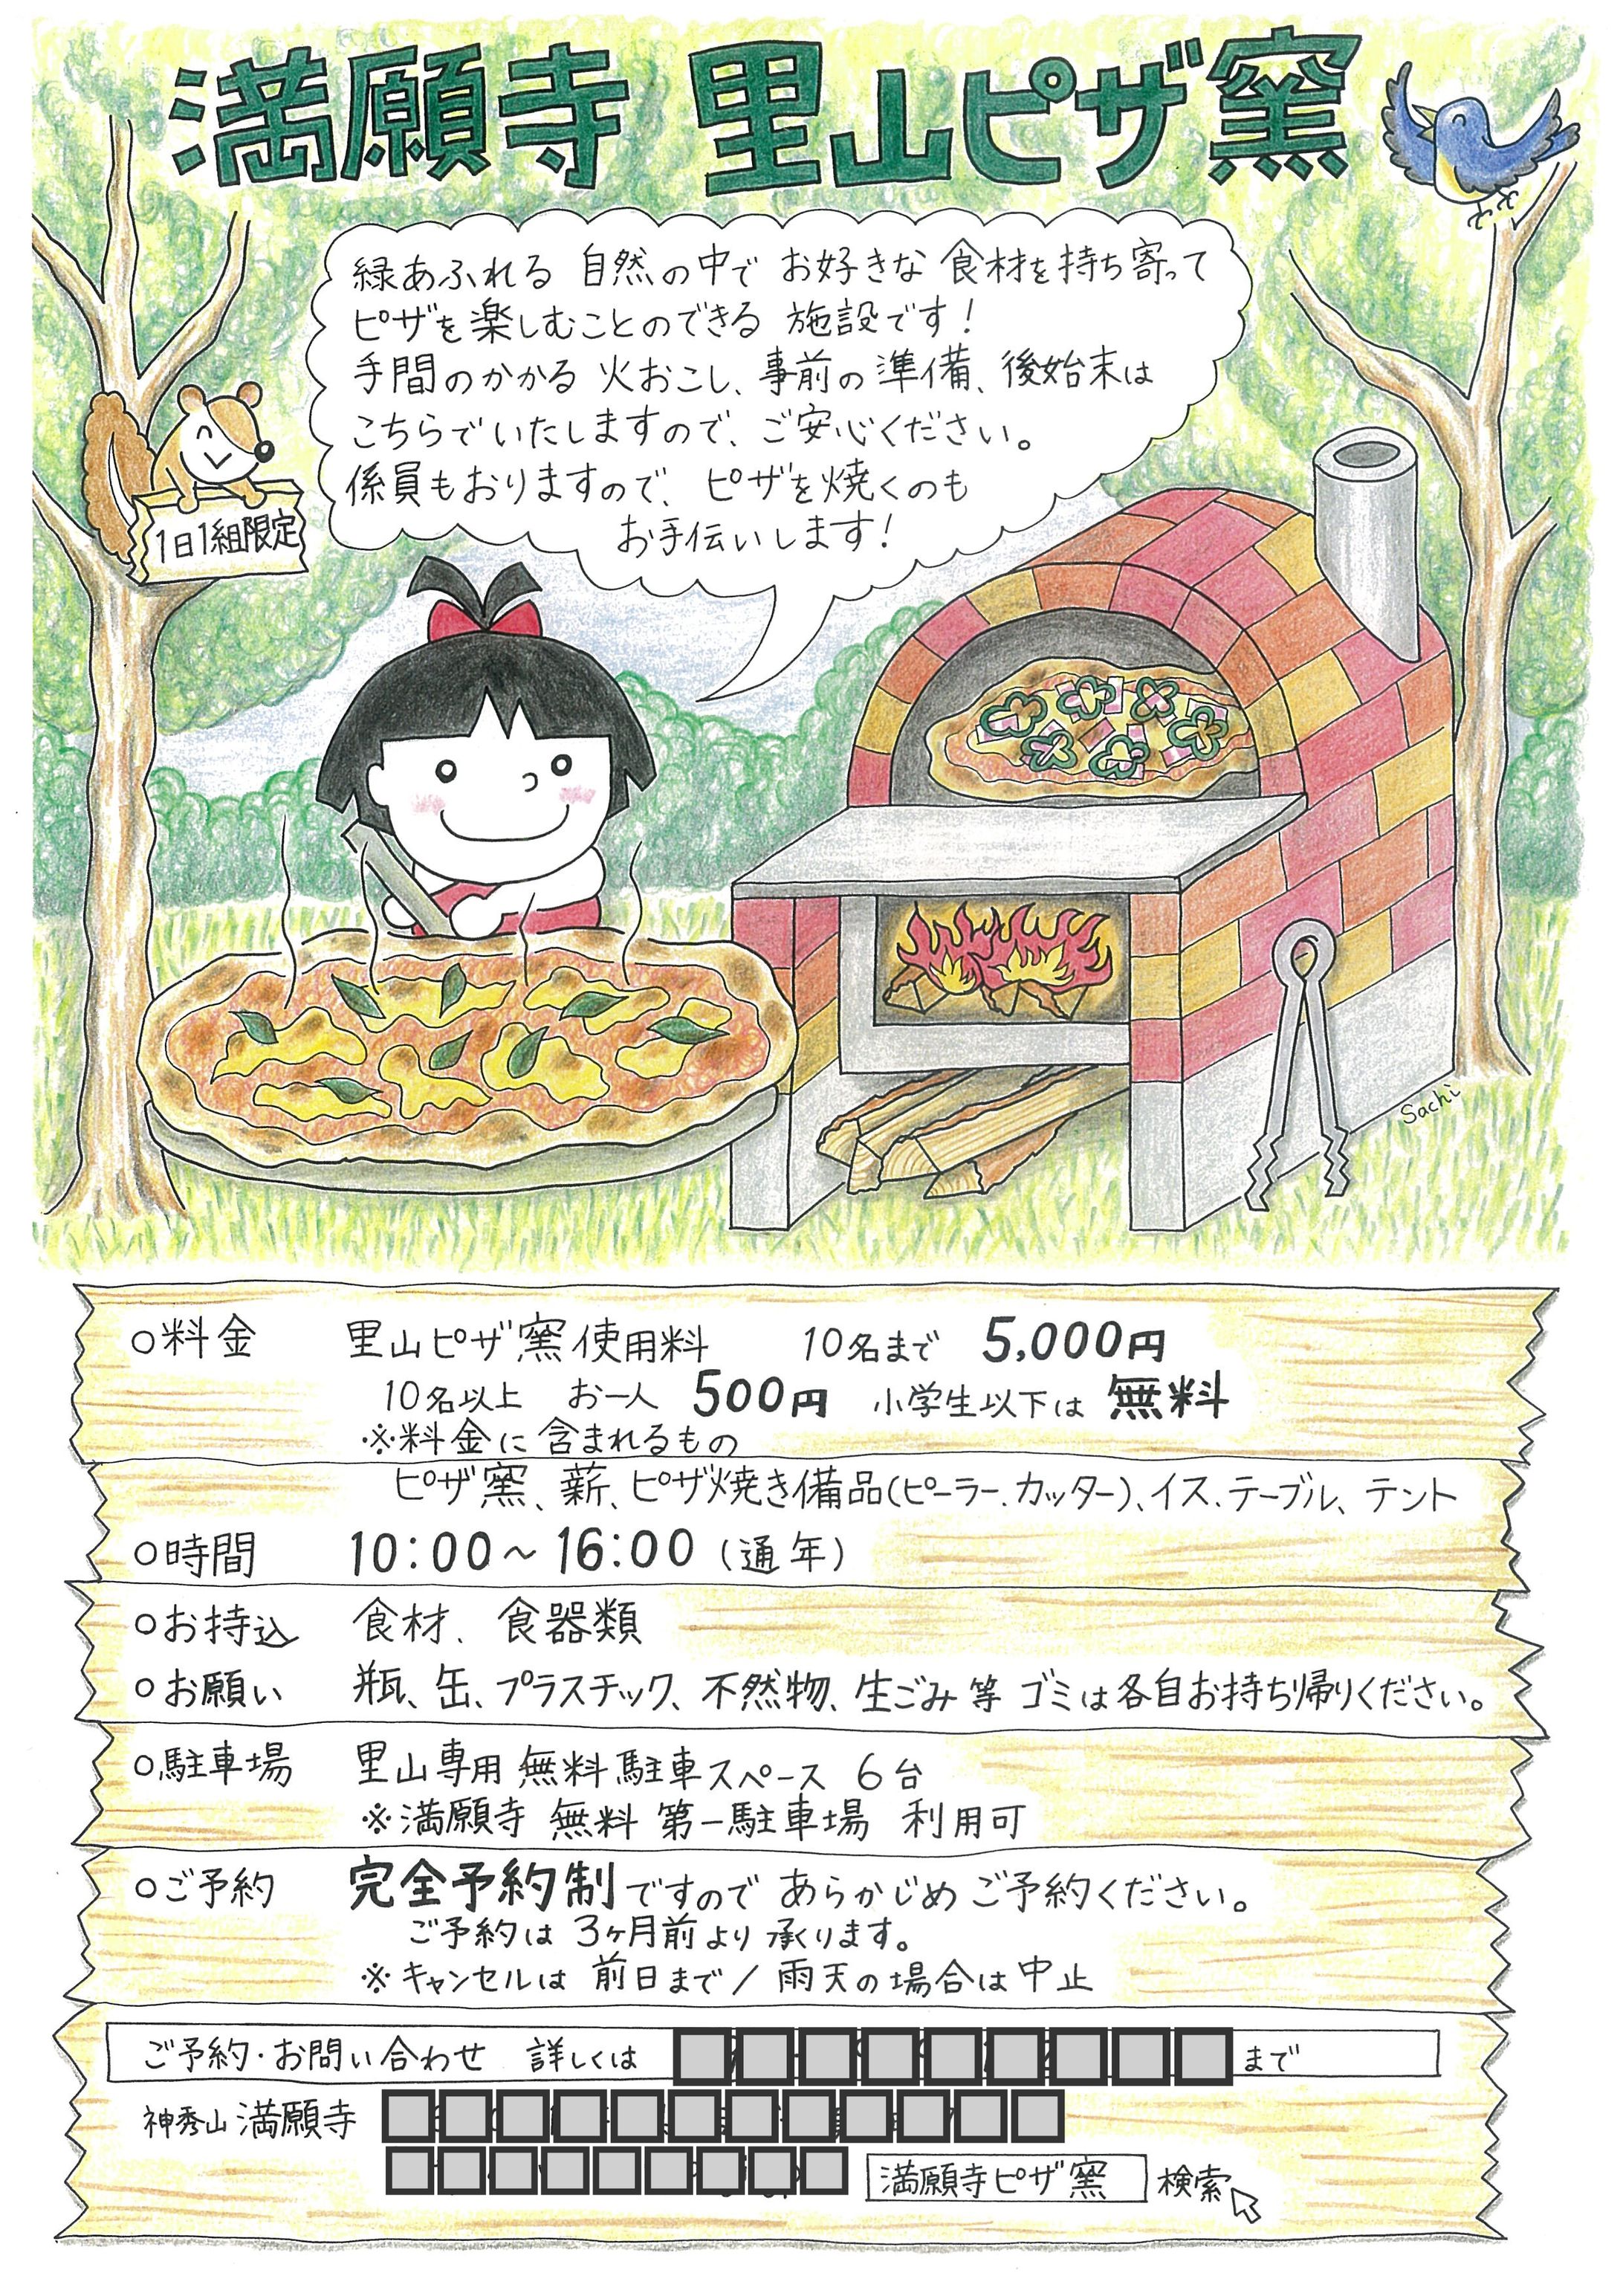 満願寺 里山ピザ窯
緑あふれる 自然の中で お好きな 食材を持ち寄って
ピザを楽しむことのできる 施設です!
手間のかかる 火おこし、事前の準備、後始末は
こちらでいたしますので、ご安心ください。
係員もおりますので、ピザを焼くのも
お手伝いします!
1日1組限定
Sachi
○料金 里山ピザ窯使用料 10名まで 5,000円
10名以上 お一人 500円 小学生以下は 無料
※料金に含まれるもの
ピザ窯、薪、ピザ焼き備品(ピーラー、カッター)、イス、テーブル、テント
○時間 10:00~16:00 (通年)
○お持込 食材、食器類
○お願い 瓶、缶、プラスチック、不然物、生ごみ等 ゴミは各自お持ち帰りください。
○駐車場 里山専用 無料駐車スペース 6台
※満願寺 無料 第一駐車場 利用可
○ご予約 完全予約制ですので あらかじめ ご予約ください。
ご予約は 3ヶ月前より 承ります。
※キャンセルは 前日まで/雨天の場合は中止
ご予約・お問い合わせ 詳しくは まで
神秀山 満願寺
満願寺ピザ窯 検索